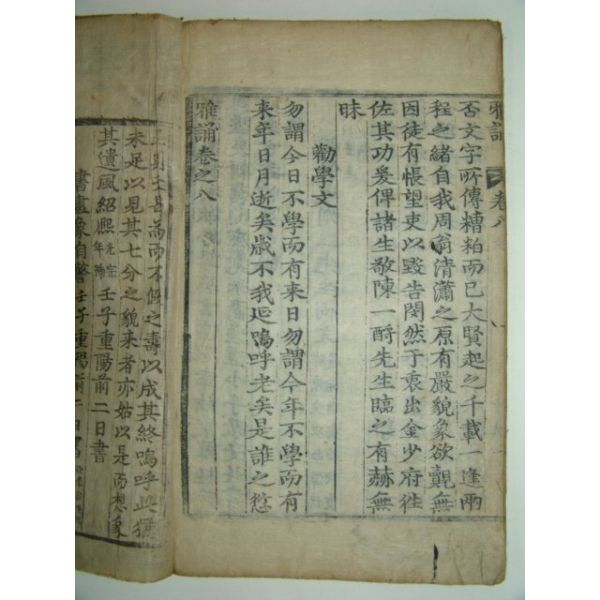 雅誦 卷八
否文字所傳糟粕而已大賢起之千載一逢兩
程之緒自我周翁清瀟之原有嚴貌象欲覿無
因徒有悵望吏以毀告閔然于衷出金少府往
佐其功爰俾諸生敬陳一酹先生臨之有赫無
昧
勸學文
勿謂今日不學而有来日勿謂今年不學而有
来年日月逝矣歲不我延嗚呼老矣是誰之愆
雅誦卷之八
而不 之壽以成其終嗚呼此
未足以見其七分之貌来者亦姑以是而想象
其遺風紹熙 光宗年號 壬子重陽前二日書
書畫象自警 壬子重陽前 日